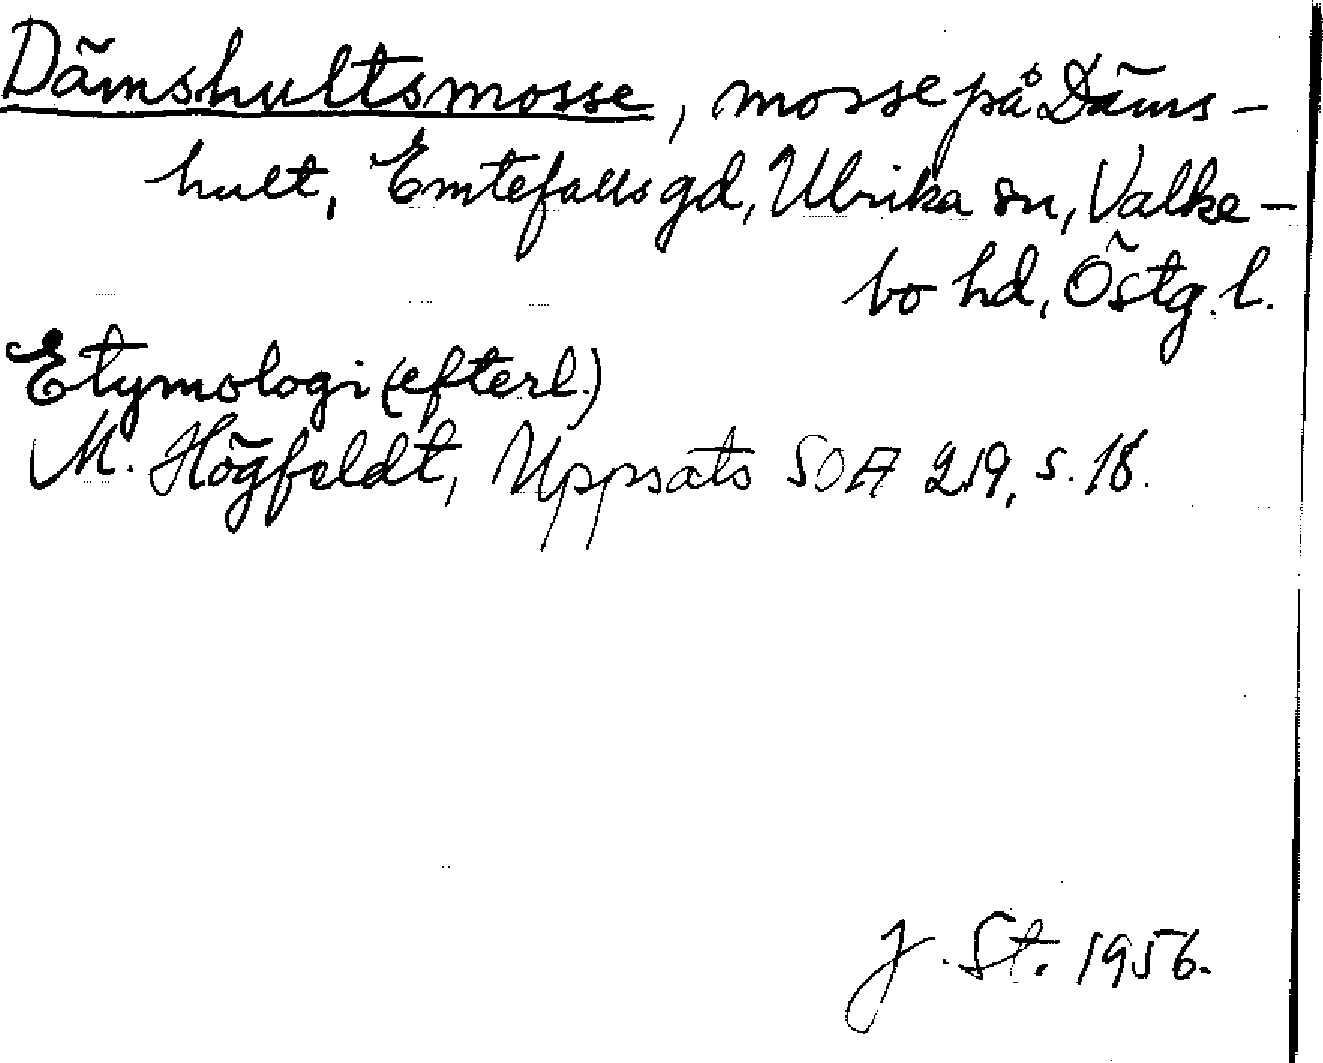 Dämshultsmosse, mosse på Däms-
hult, Emtefalls gd, Ulrika sn, Valke-
bo hd, Östg. l.
Etymologi (efterl.)
M. Högfeldt, Uppsats SOA 219, s. 18.
J. St. 1956.